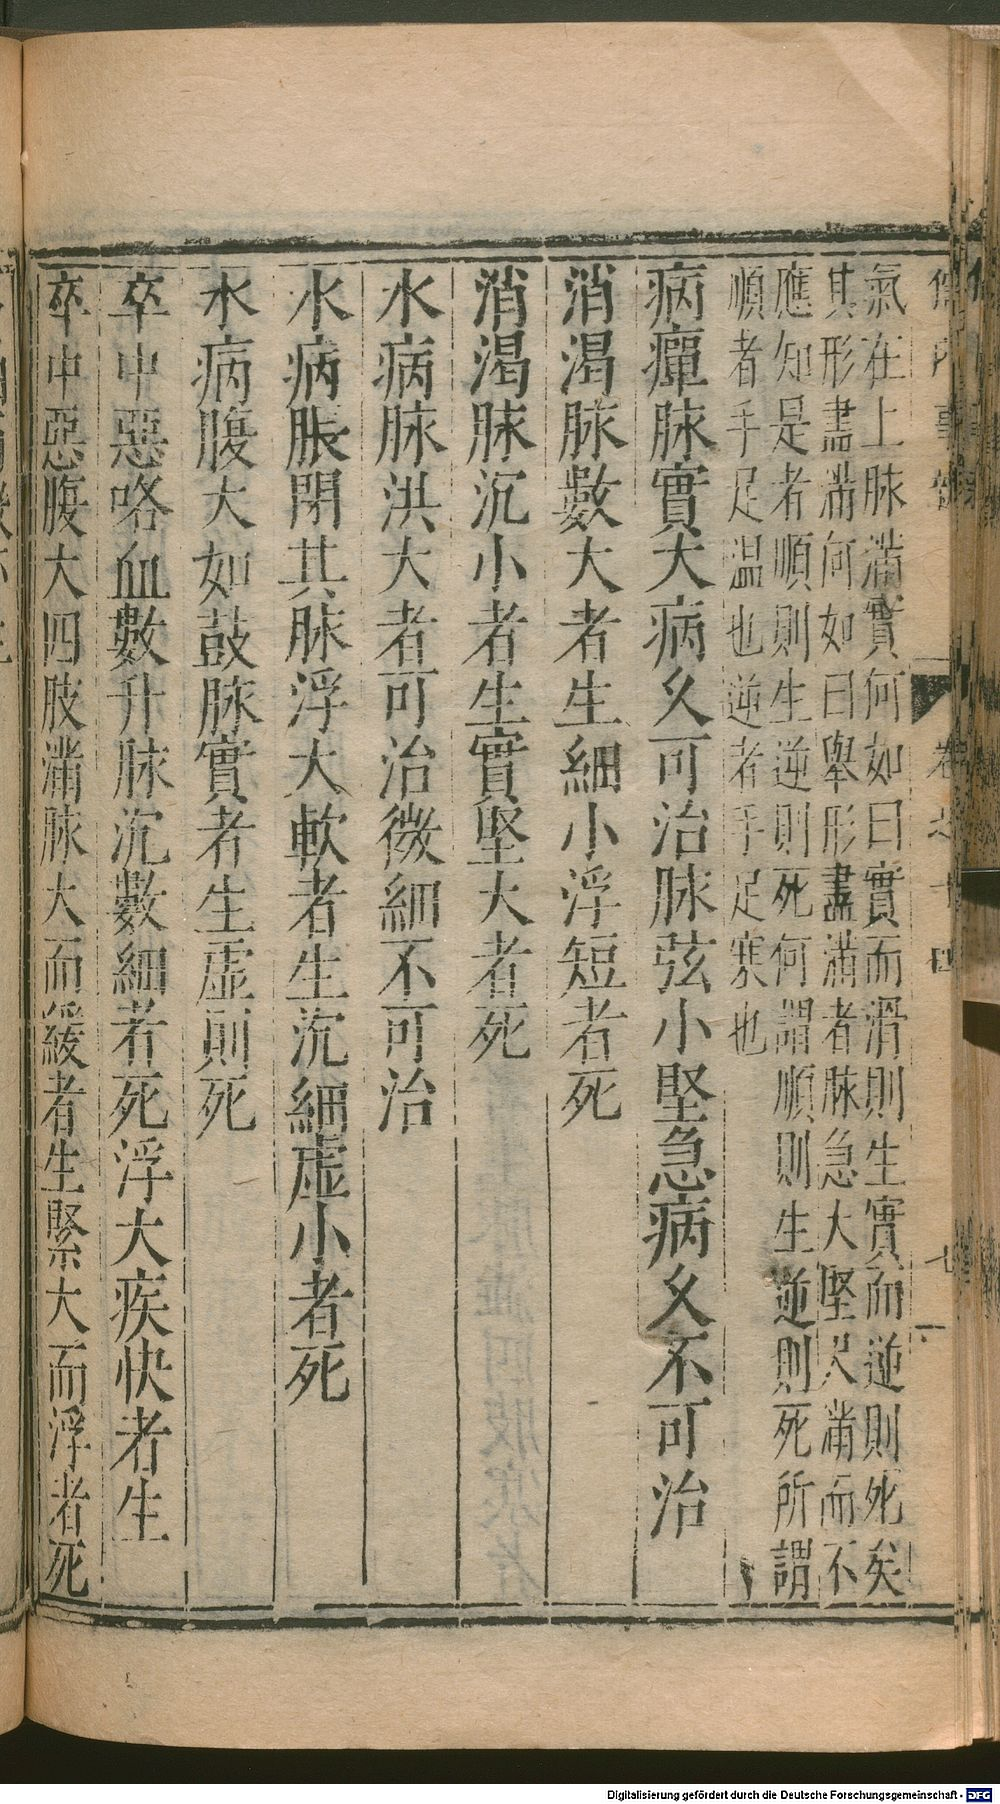 氣在上脉滿實何如曰實而滑則生實而逆則死矣
其形盡滿何如曰舉形盡滿者脉急大堅尺滿而不
應知是者順則生逆則死何謂順則生逆則死所謂
順者手足温也逆者手足寒也
病癉脉實大病久可治脉弦小堅急病久不可治
消渴脉數大者生細小浮短者死
消渴脉沉小者生實堅大者死
水病脉洪大者可治微細不可治
水病脹閉其脉浮大軟者生沉細虛小者死
水病腹大如鼓脉實者生虛則死
卒中惡咯血數升脉沉數細者死浮大疾快者生
卒中惡腹大四肢滿脉大而緩者生緊大而浮者死
卷之十四
七
Digitalisierung gefördert durch die Deutsche Forschungsgemeinschaft - DFG